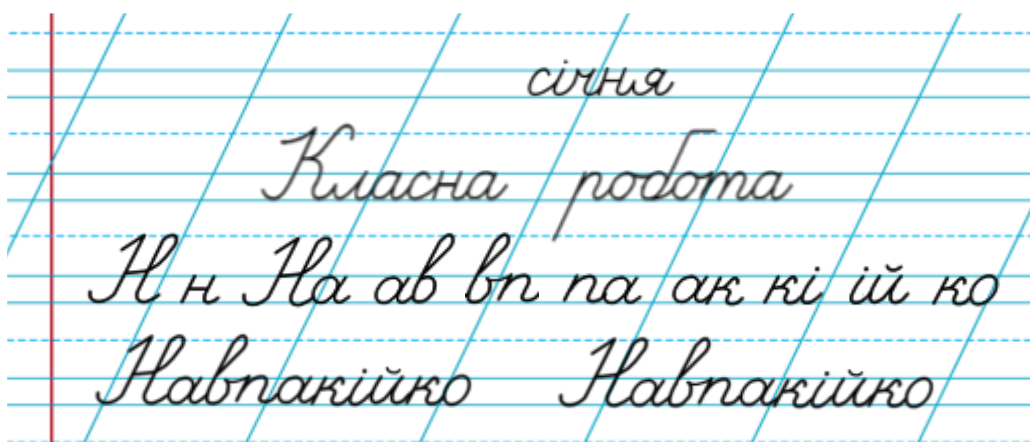 січня
Класна робота
Н н На ав вп па ак кі ій ко
Навпакійко Навпакійко